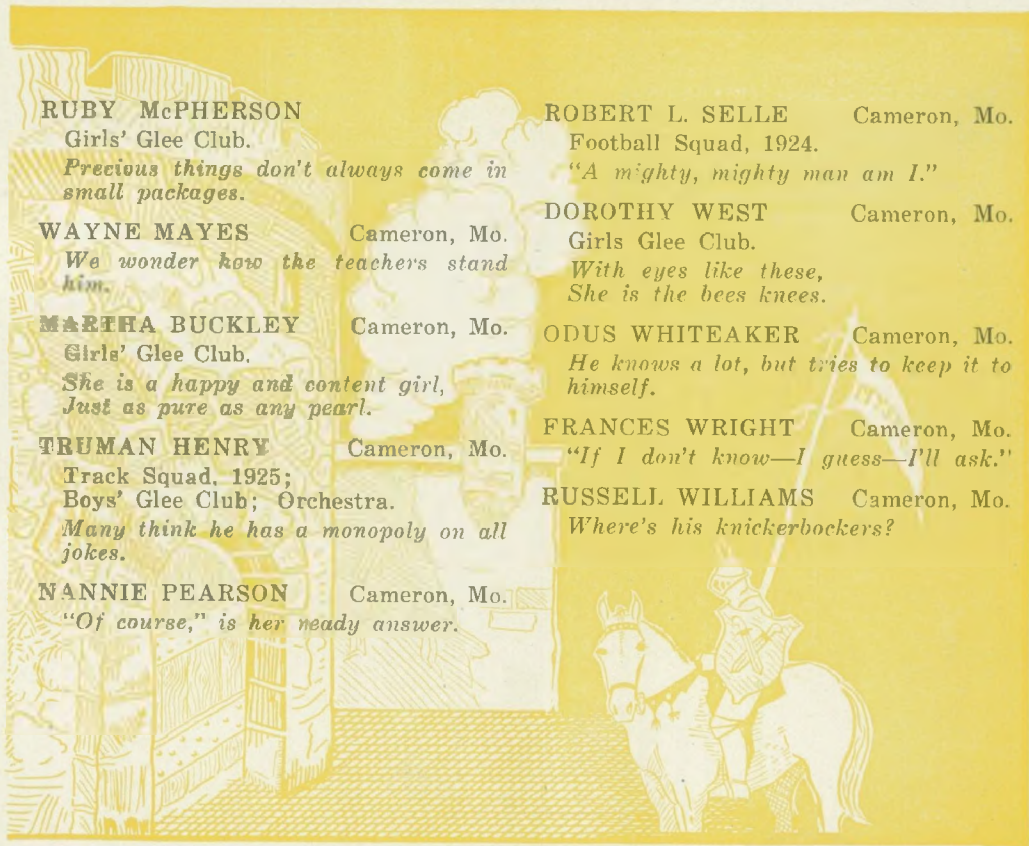 RUBY McPHERSON
Girls' Glee Club.
Precious things don't always come in
small packages.
WAYNE MAYES Cameron, Mo.
We wonder how the teachers stand
him.
MARTHA BUCKLEY Cameron, Mo.
Girls' Glee Club.
She is a happy and content girl,
Just as pure as any pearl.
TRUMAN HENRY Cameron, Mo.
Track Squad, 1925;
Boys' Glee Club; Orchestra.
Many think he has a monopoly on all
jokes.
NANNIE PEARSON Cameron, Mo.
"Of course," is her ready answer.
ROBERT L. SELLE Cameron, Mo.
Football Squad, 1924.
"A mighty, mighty man am I."
DOROTHY WEST Cameron, Mo.
Girls Glee Club.
With eyes like these,
She is the bees knees.
ODUS WHITEAKER Cameron, Mo.
He knows a lot, but tries to keep it to
himself.
FRANCES WRIGHT Cameron, Mo.
"If I don't know—I guess—I'll ask."
RUSSELL WILLIAMS Cameron, Mo.
Where's his knickerbockers?